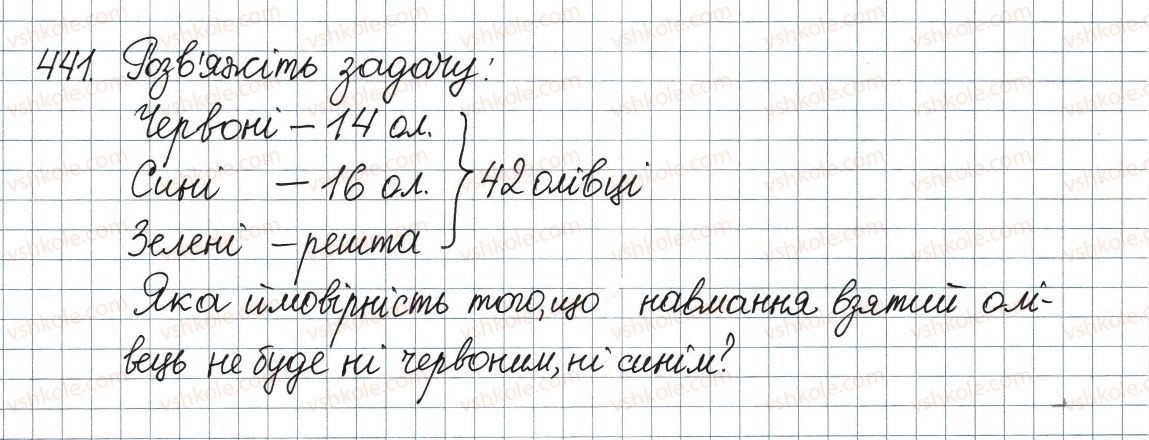 441. Розв'яжіть задачу:
Червоні – 14 ол.
Сині – 16 ол. } 42 олівці
Зелені – решта
Яка ймовірність того, що навмання взятий олі-
вець не буде ні червоним, ні синім?